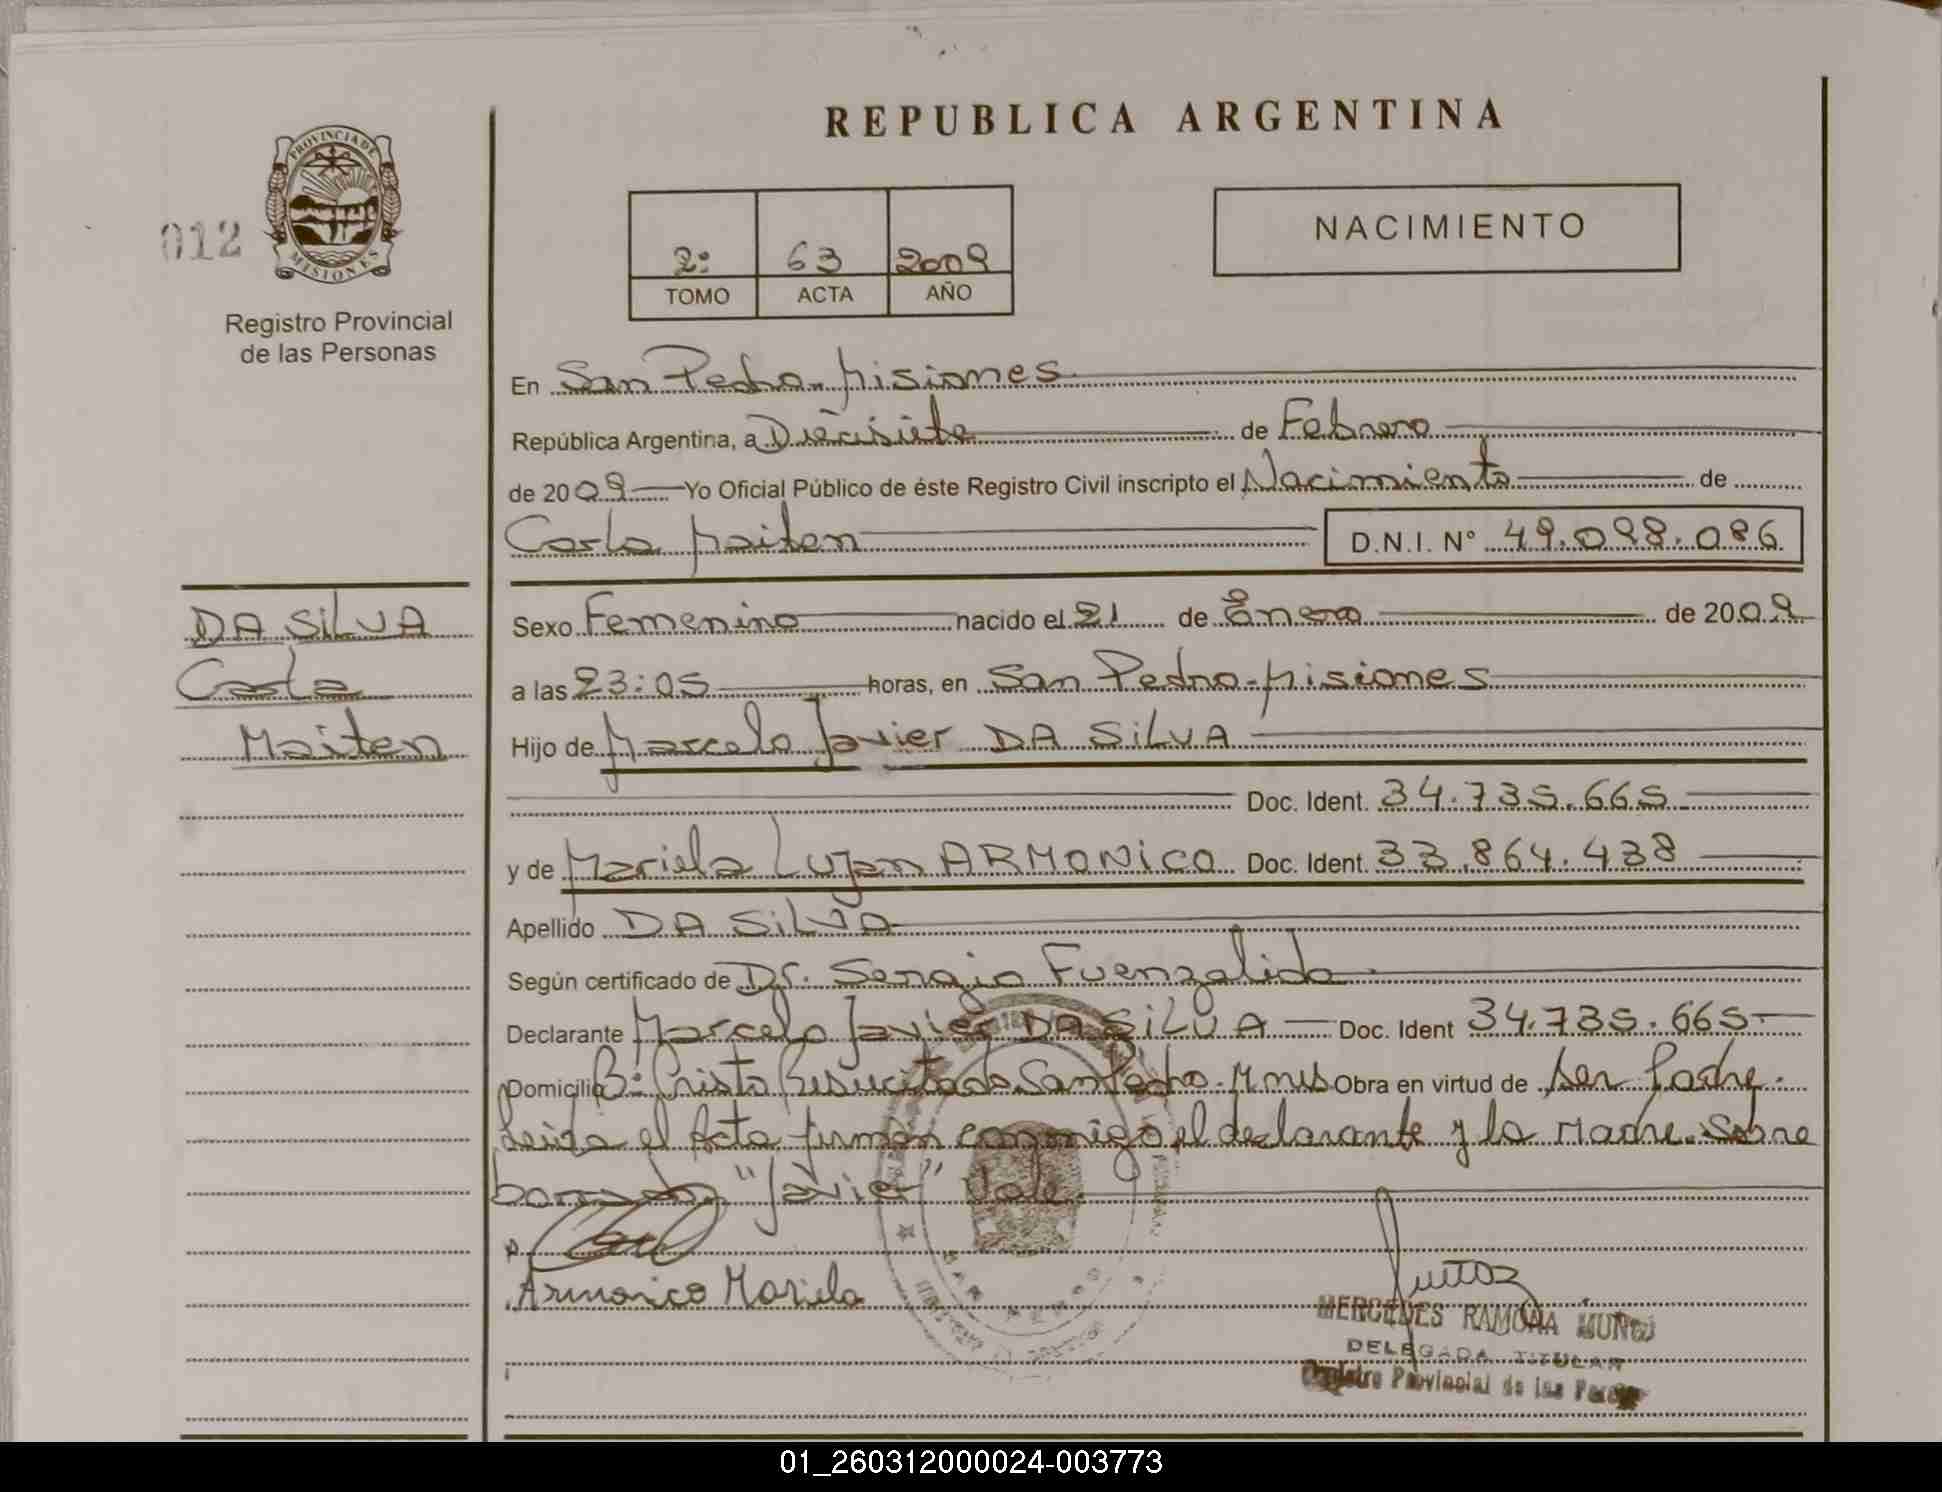 REPUBLICA ARGENTINA
PROVINCIA DE
MISIONES
012
Registro Provincial
de las Personas
2º 63 2009
TOMO ACTA AÑO
NACIMIENTO
En San Pedro. Misiones
República Argentina, a Diecisiete de Febrero
de 2009 Yo Oficial Público de éste Registro Civil inscripto el Nacimiento de
Carla Maiten D.N.I. Nº 49.098.086
DA SiLVA
Carla
Maiten
Sexo Femenino nacido el 21 de Enero de 2009
a las 23:05 horas, en San Pedro-Misiones
Hijo de Marcelo Javier DA SiLVA
Doc. Ident. 34.735.665
y de Mariela Lujan ARMONiCO Doc. Ident. 33.864.438
Apellido DA SiLVA
Según certificado de Dr. Sergio Fuenzalida
Declarante Marcelo Javier DA SiLVA Doc. Ident 34.735.665
Domicilio Bº Cristo Resucitado San Pedro. Mnes Obra en virtud de ser Padre.
Leida el Acta firman conmigo el declarante y la Madre. Sobre
borrado "Javier" Vale.
Armonico Mariela
SAN PEDRO
MERCEDES RAMONA MUÑOZ
DELEGADA TITULAR
Registro Provincial de las Personas
01_260312000024-003773